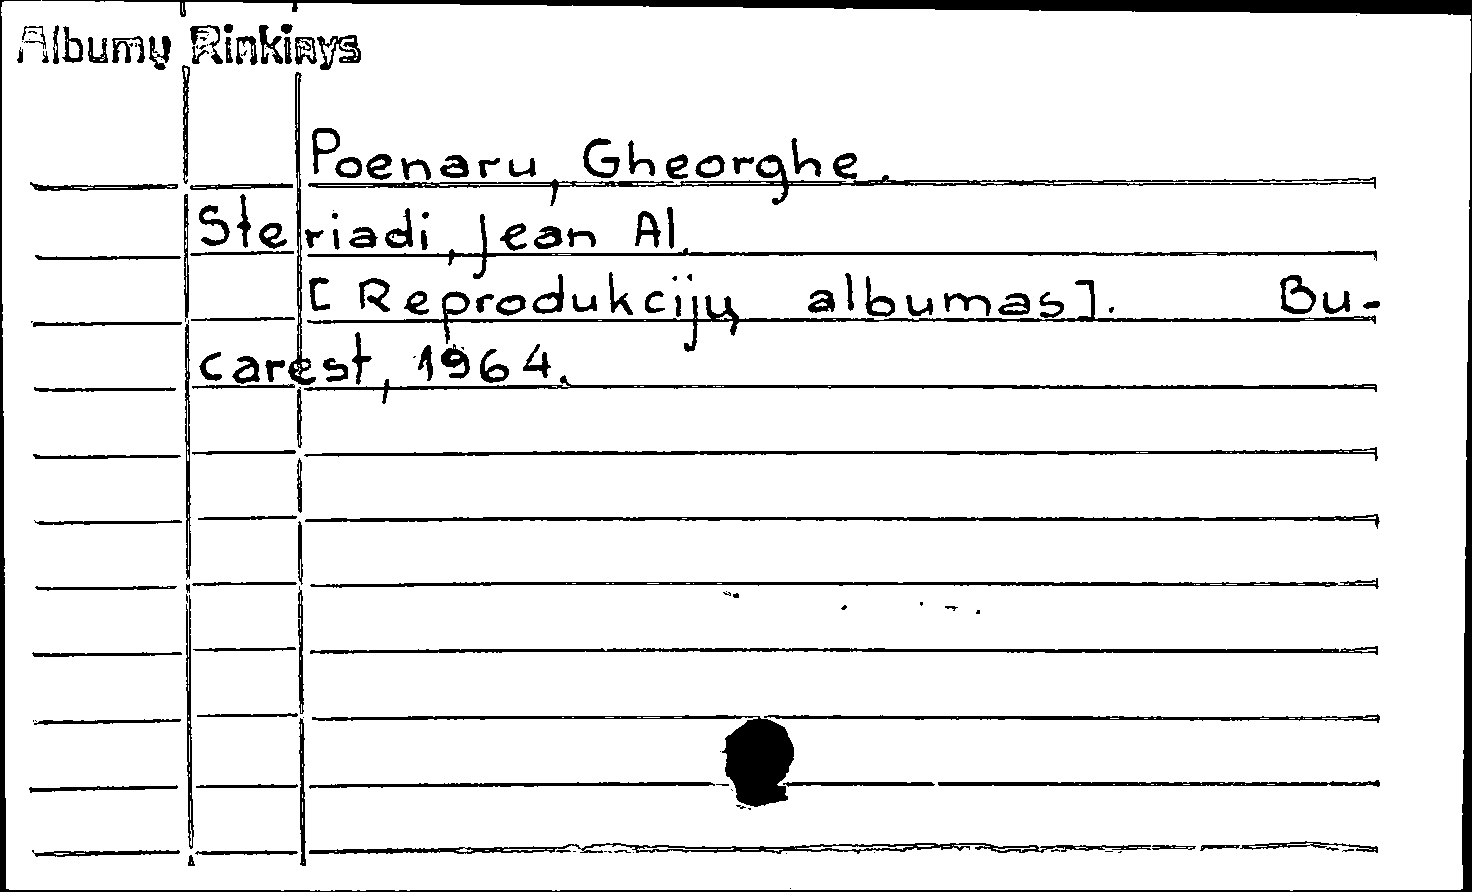 Albumų Rinkinys
Poenaru, Gheorghe.
Steriadi, Jean Al.
[Reprodukcijų albumas]. Bu-
carest, 1964.